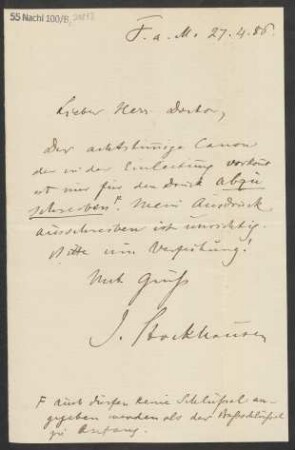 55 Nachl 100/B,
F. a. M. 27.4.86.
Lieber Herr Doctor,
Der achtstimmige Canon
der in der Einleitung vorkommt
ist nur für den Druck abzu
schreiben F. Mein Ausdruck
ausschreiben ist unrichtig.
Bitte um Verzeihung!
Mit Gruß
J. Stockhausen
F auch dürfen keine Schlüssel an-
gegeben werden als der Baßschlüssel
zu Anfang.